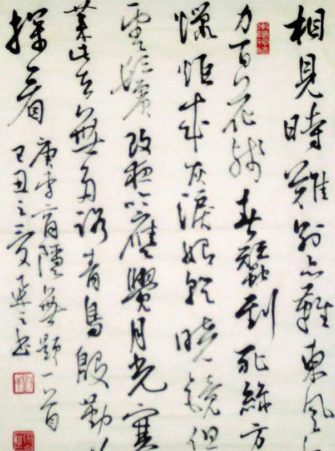 相見時難别亦難東風
力百花殘春蠶到死絲方
蠟炬成灰淚始乾曉鏡但
雲鬢改夜吟應覺月光寒
萊此去無多路青鳥殷勤
探看
唐李商隱無題一首
己丑之夏